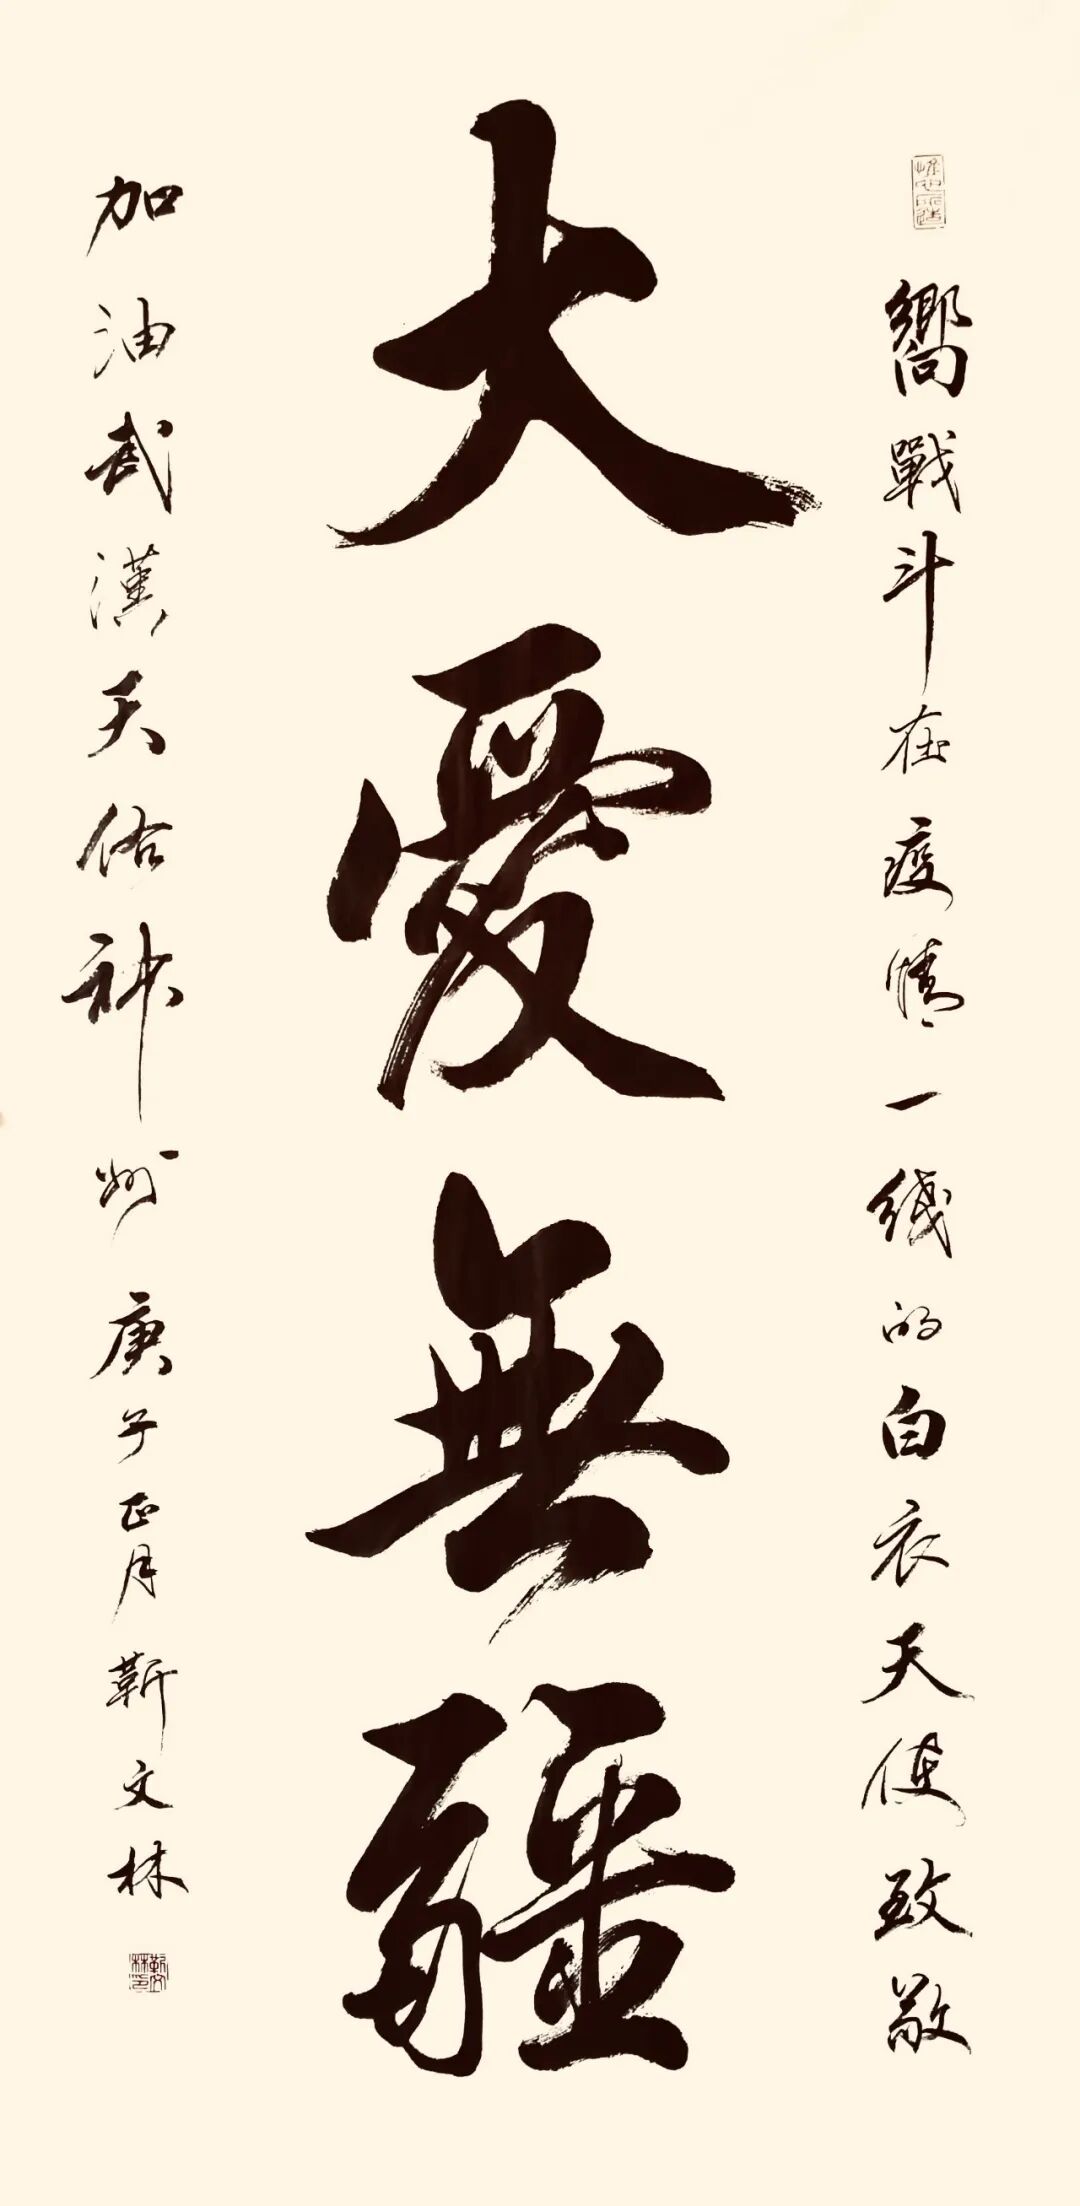 嚮戰斗在疫情一线的白衣天使致敬
大愛無疆
加油武漢天佑神州庚子正月靳文林
靳文林印